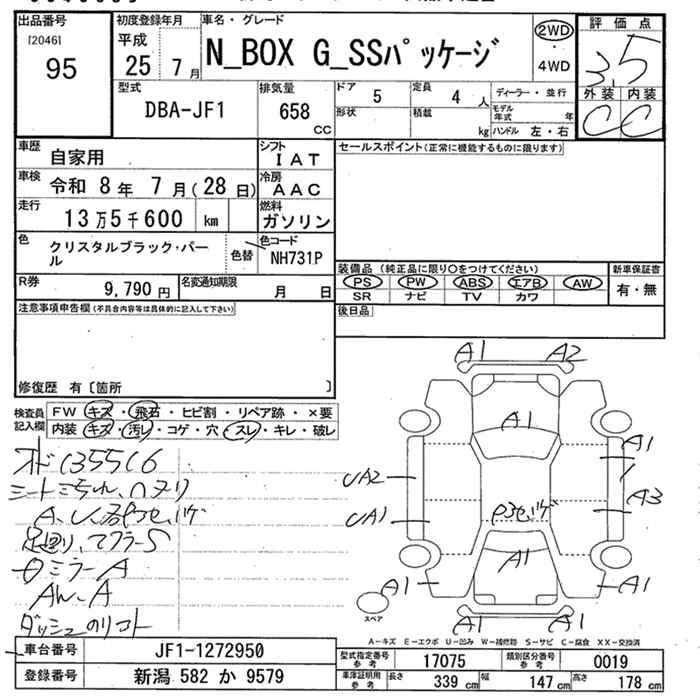 出品番号
[2046]
95
初度登録年月
平成
25 7月
車名・グレード
N_BOX G_SSパッケージ
2WD
・
4WD
評価点
3.5
外装 内装
C C
型式
DBA-JF1
排気量
658
CC
ドア
5
定員
4 人
ディーラー・並行
形状
積載
kg
モデル年式 年
ハンドル 左・右
車歴
自家用
シフト
IAT
車検
令和 8年 7月(28日)
冷房
AAC
走行
13万5千600 km
燃料
ガソリン
色
クリスタルブラック・パール
色替
色コード
NH731P
R券
9,790円
名変通知期限
月 日
セールスポイント(正常に機能するものに限ります)
装備品(純正品に限り〇をつけてください)
PS PW ABS エアB AW
SR ナビ TV カワ
新車保証書
有・無
後日品
注意事項申告欄(不具合内容等は具体的に記入して下さい)
修復歴 有〔箇所 〕
検査員記入欄
FW キズ・飛石・ヒビ割・リペア跡・×要
内装 キズ・汚レ・コゲ・穴・スレ・キレ・破レ
オド135516
A、U、
足廻り、マフラーS
ミラーA
AW-A
A1 A2
A1
A1
UA2
A3
UA1
A1
A1 A1
A1 A1
スペア
A-キズ E-エクボ U-凹み W-補修跡 S-サビ C-腐食 XX-交換済
車台番号
JF1-1272950
登録番号
新潟 582 か 9579
型式指定番号
参考
17075
類別区分番号
参考
0019
車庫証明用
参考
長さ 339 cm 幅 147 cm 高さ 178 cm